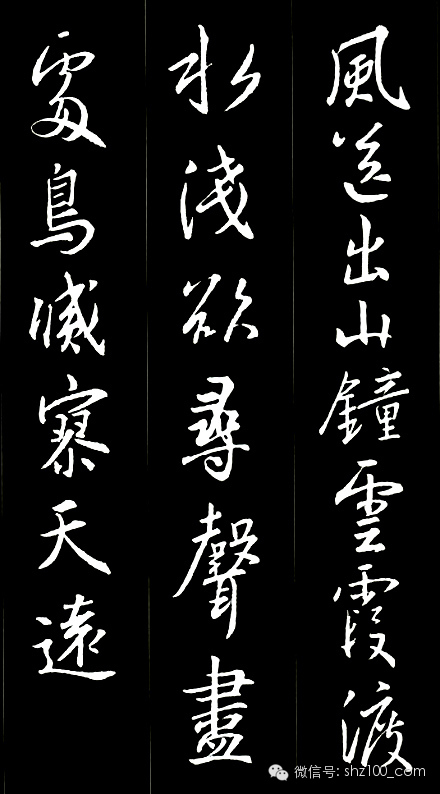 風送出山鐘雲霞渡
水淺欲尋聲盡
處鳥滅寥天遠
微信号: shz100_com